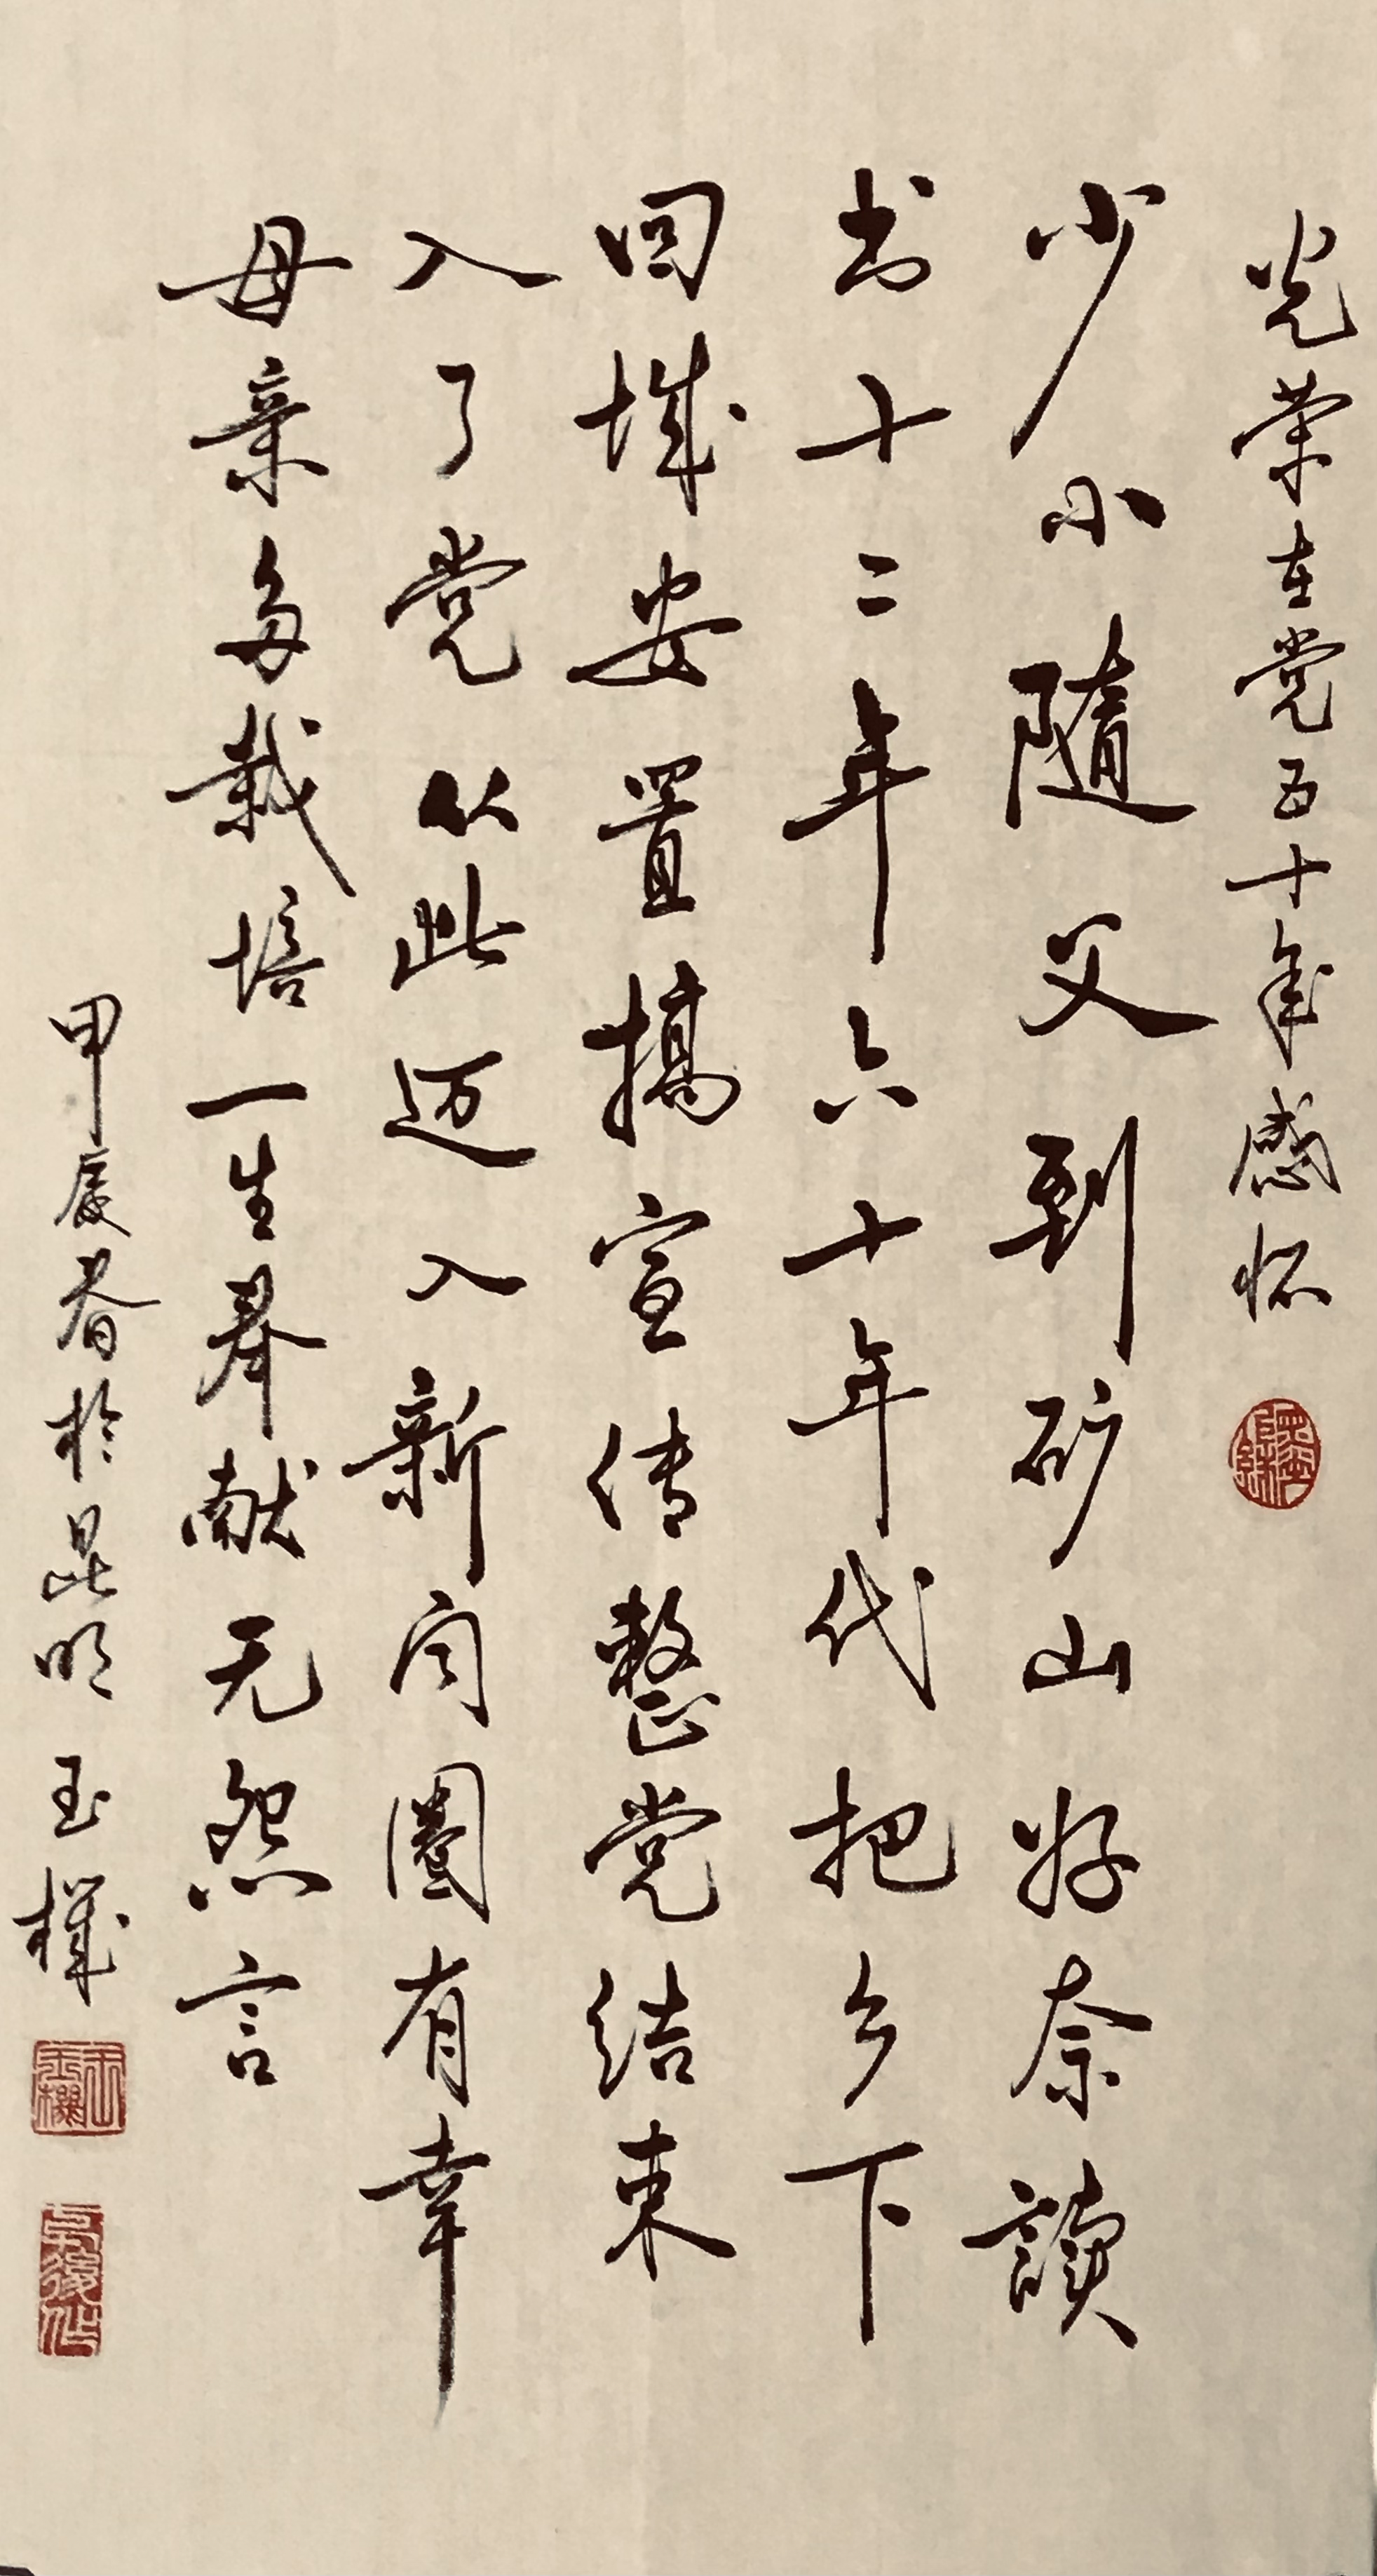 光荣在党五十年感怀
少小随父到矿山好奈讀
书十二年六十年代把乡下
回城安置搞宣传整党结束
入了党从此迈入新闩圈有幸
母亲多栽培一生奉献无怨言
甲辰春於昆明玉欄